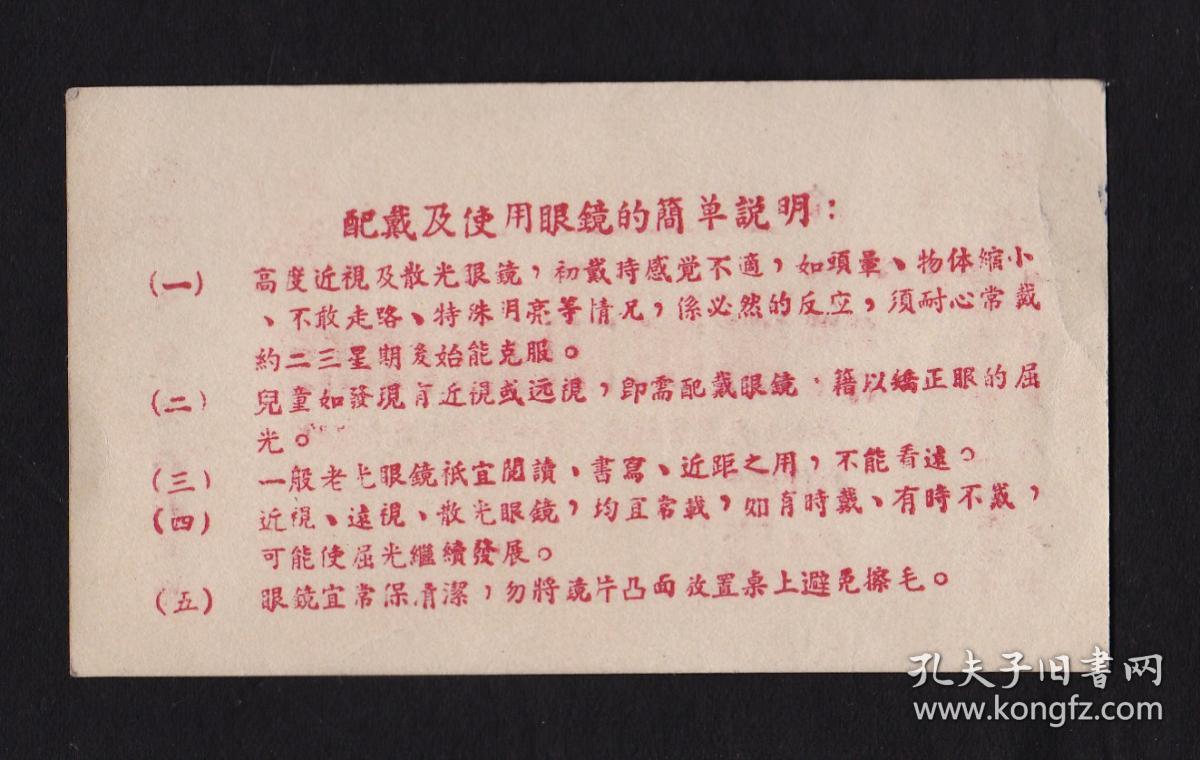 配戴及使用眼鏡的簡单説明：
(一) 高度近視及散光眼鏡，初戴時感觉不適，如頭暈、物体縮小
、不敢走路、特殊明亮等情况，係必然的反应，須耐心常戴
約二三星期後始能克服。
(二) 兒童如發現有近視或远視，即需配戴眼鏡，籍以矯正眼的屈
光。
(三) 一般老光眼鏡祇宜閱讀、書寫、近距之用，不能看遠。
(四) 近視、遠視、散光眼鏡，均宜常戴，如有時戴、有時不戴，
可能使屈光繼續發展。
(五) 眼鏡宜常保清潔，勿將鏡片凸面放置桌上避免擦毛。
孔夫子旧書网
www.kongfz.com